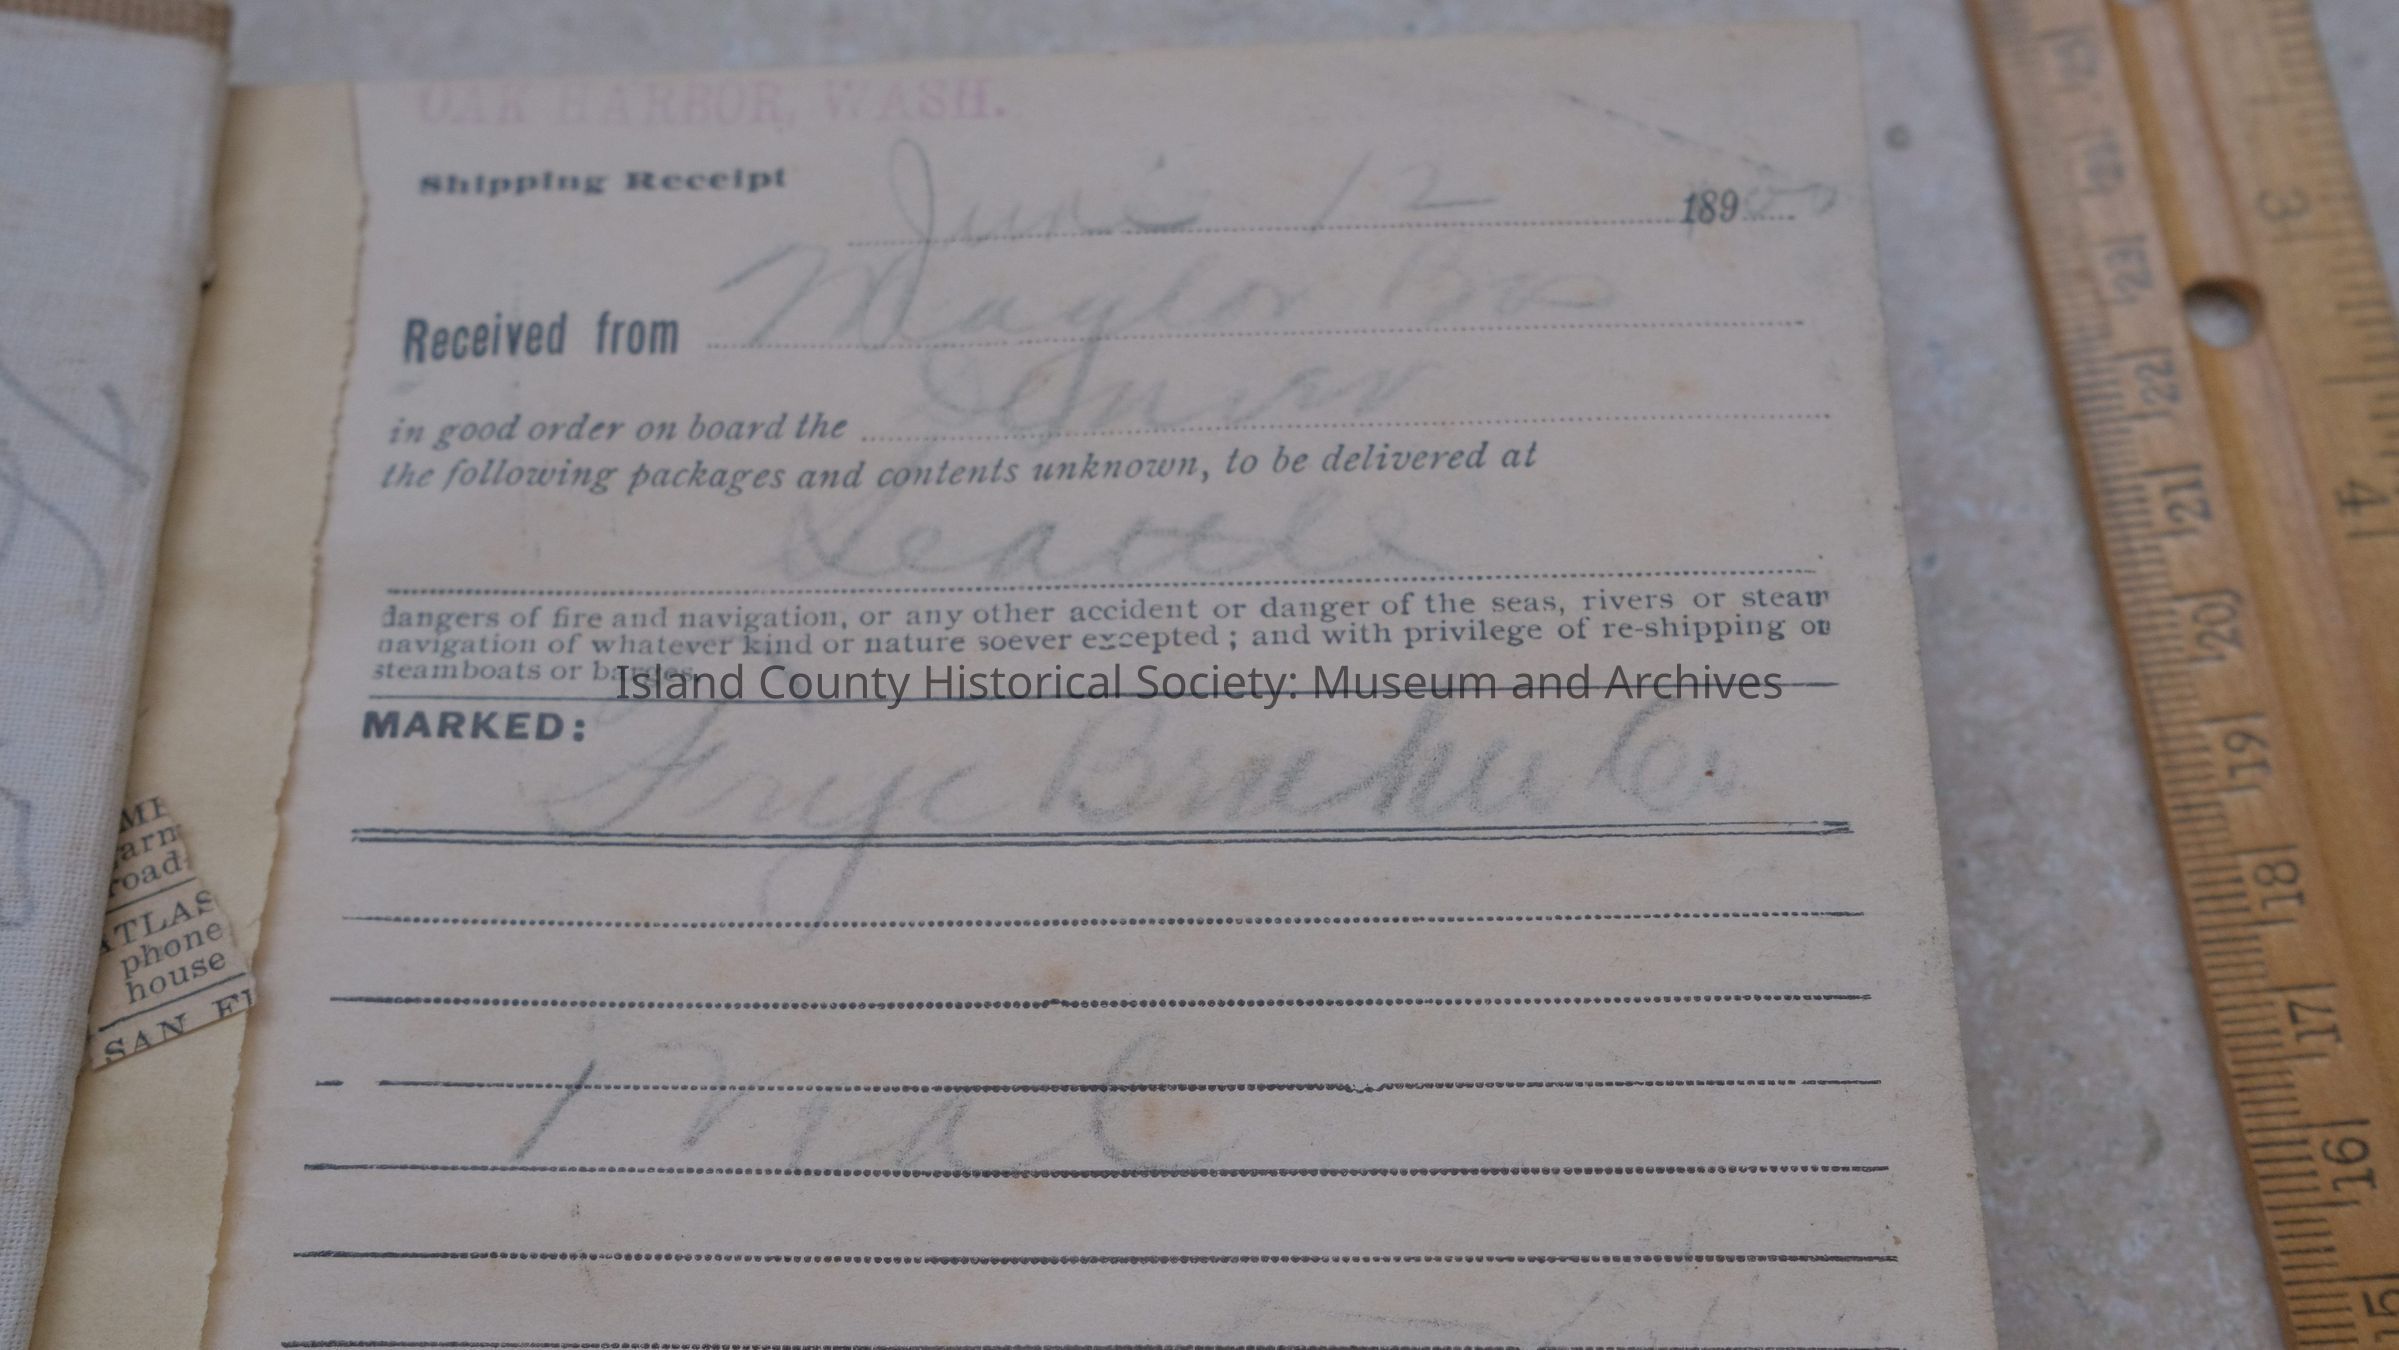 OAK HARBOR, WASH.
Shipping Receipt
June 12 189
Received from Maylor Bros
in good order on board the
the following packages and contents unknown, to be delivered at
Seattle
dangers of fire and navigation, or any other accident or danger of the seas, rivers or steam
navigation of whatever kind or nature soever excepted ; and with privilege of re-shipping on
steamboats or barges.
Island County Historical Society: Museum and Archives
MARKED:
Frye Bruhn Co
1 Veal
ATLAS
phone
house
SAN
3
4
23
22
21
20
19
18
17
16
15